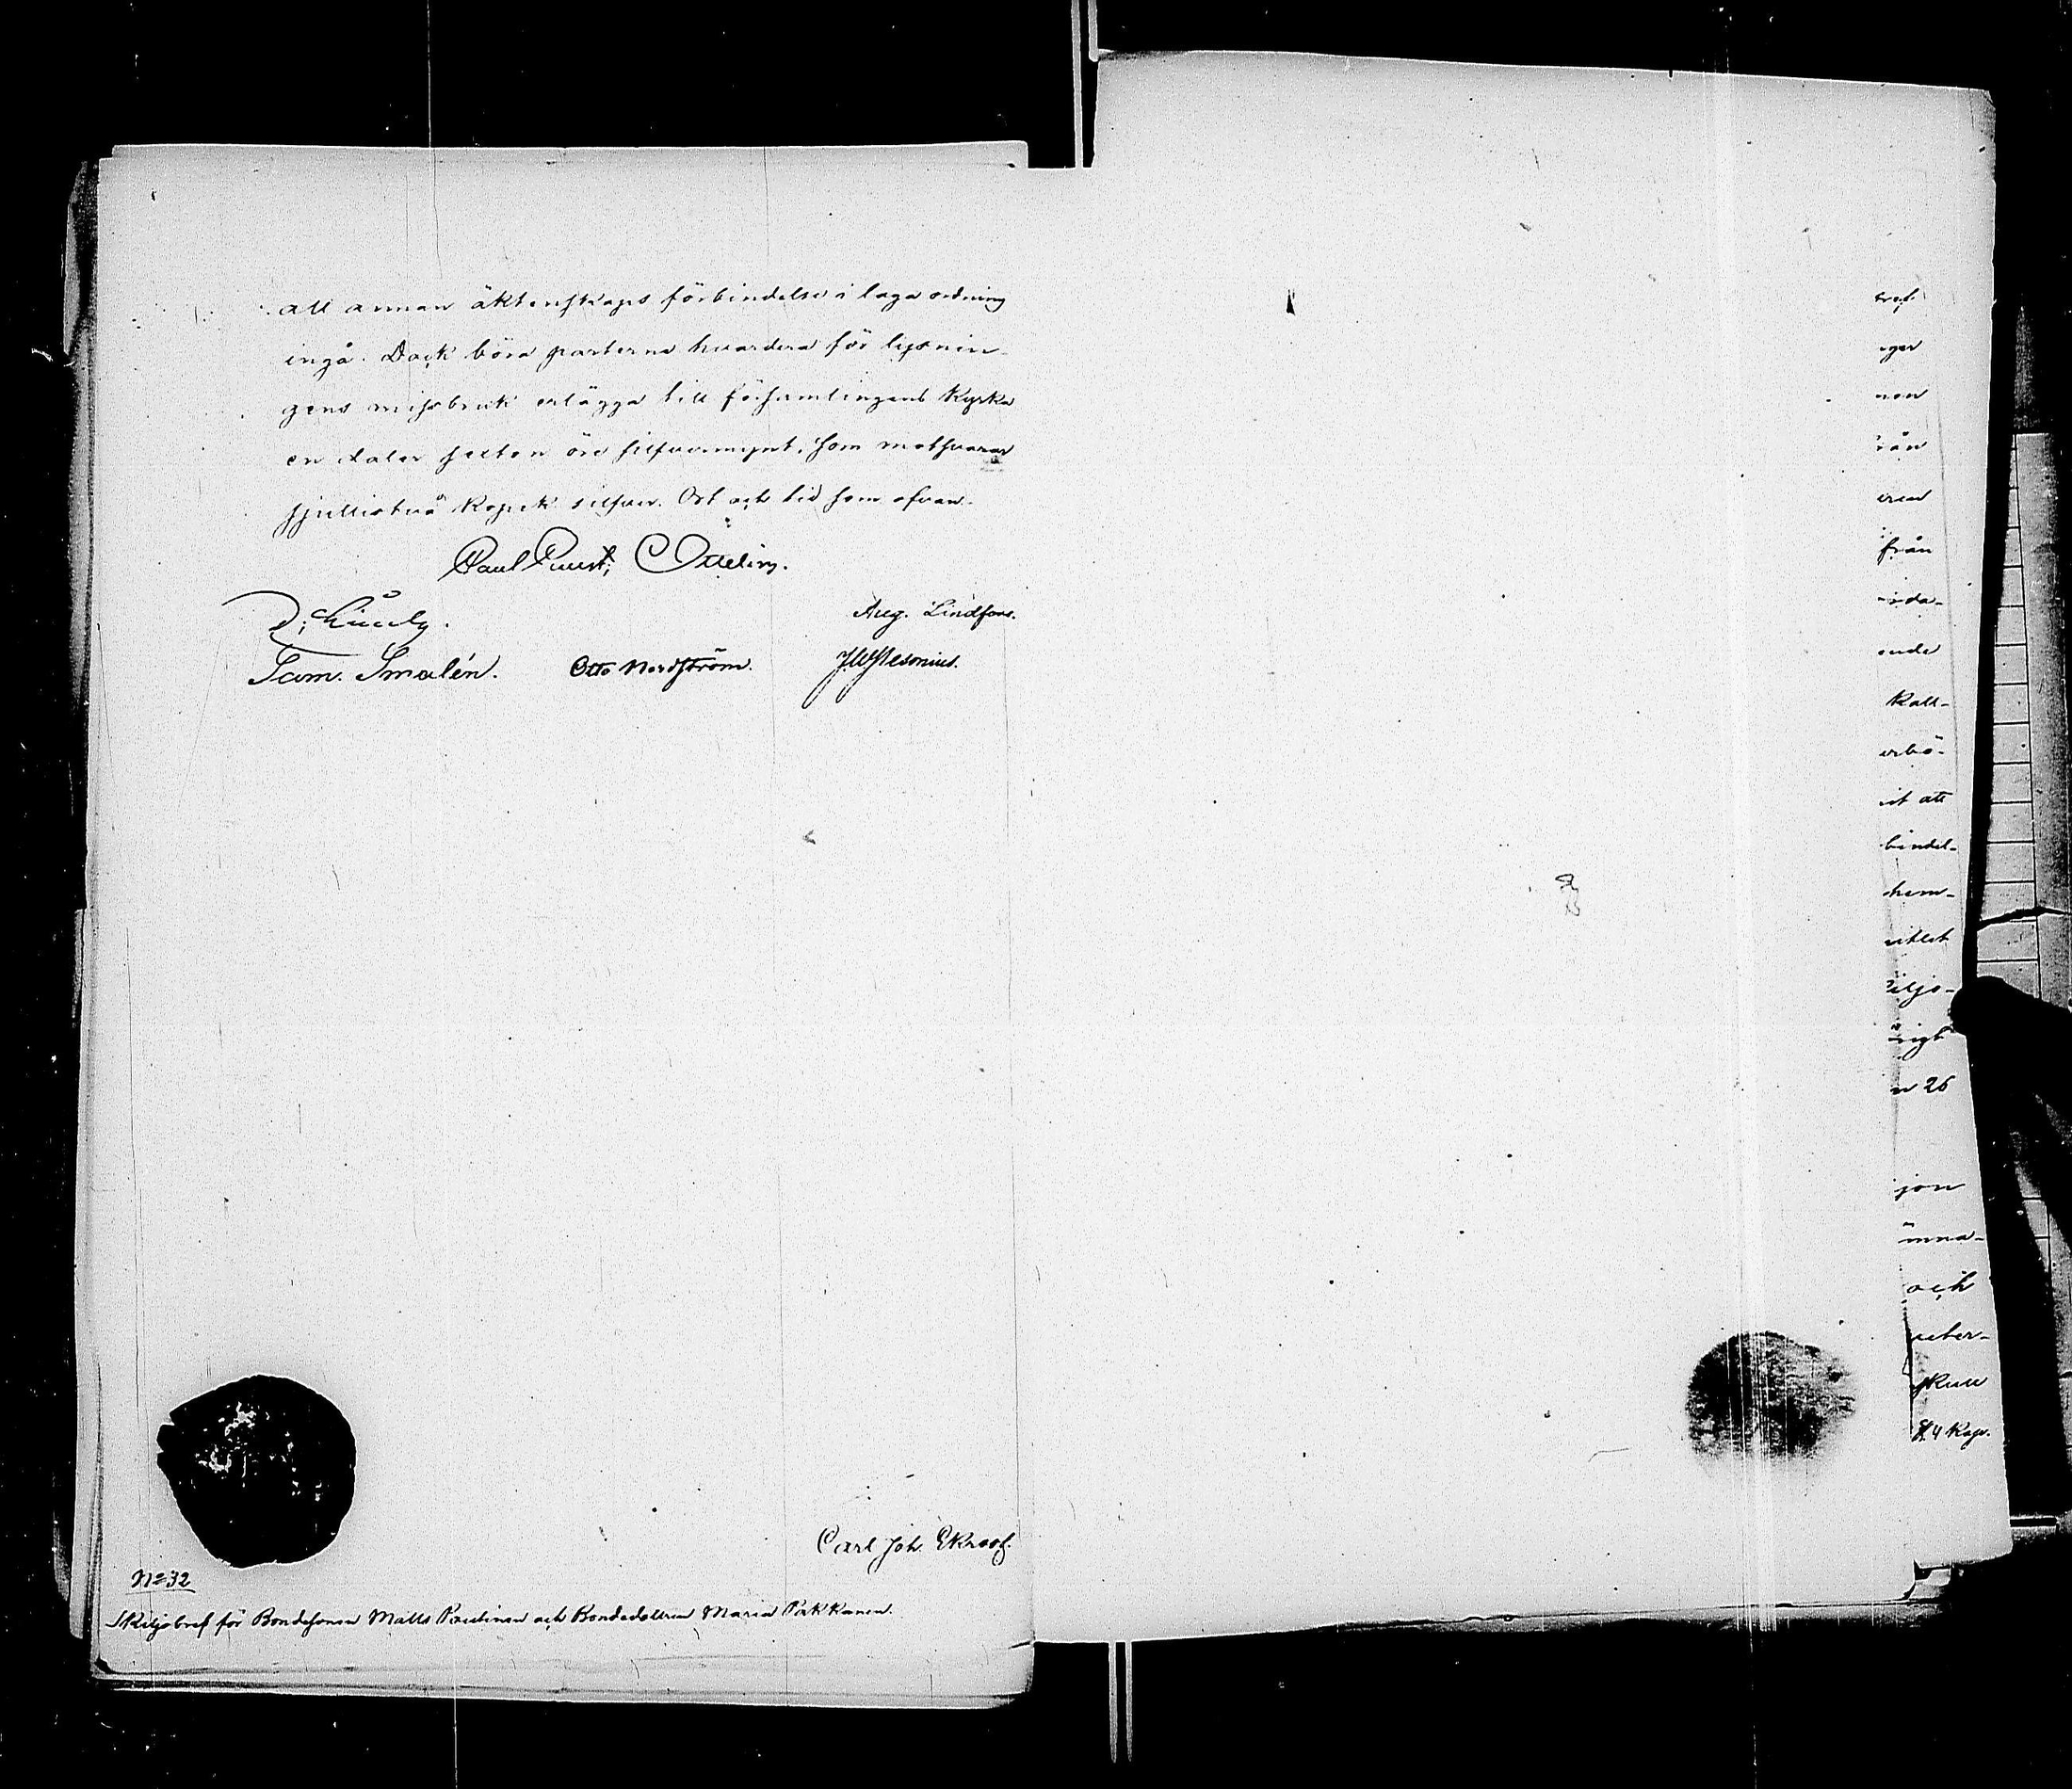 att annan äktenskaps förbindelse i laga ordning
ingå. Dock böra parterne hvardera för lysnin-
gens missbruk erlägga till församlingens Kyrka
en daler sexton öre silfvermynt, som motsvarar
sjuttiotvå kopek silfver. Ort och tid som ofvan.
C Ottelin.
Aug. Lindfors.
Sam. Smalén. Otto Nordström.
Carl Joh. Ekroof.
No 32
Skiljobref för Bondesonen Matts Pautinen och Bondedottren Maria Pakkanen.
bref
eger
non
från
eren
från
ida-
ende
Kall-
erbö-
it att
bindel-
hem-
ittlet
kiljo-
origt
n 26
jon
ämna-
och
ueber-
skull
§. 4 Kap.